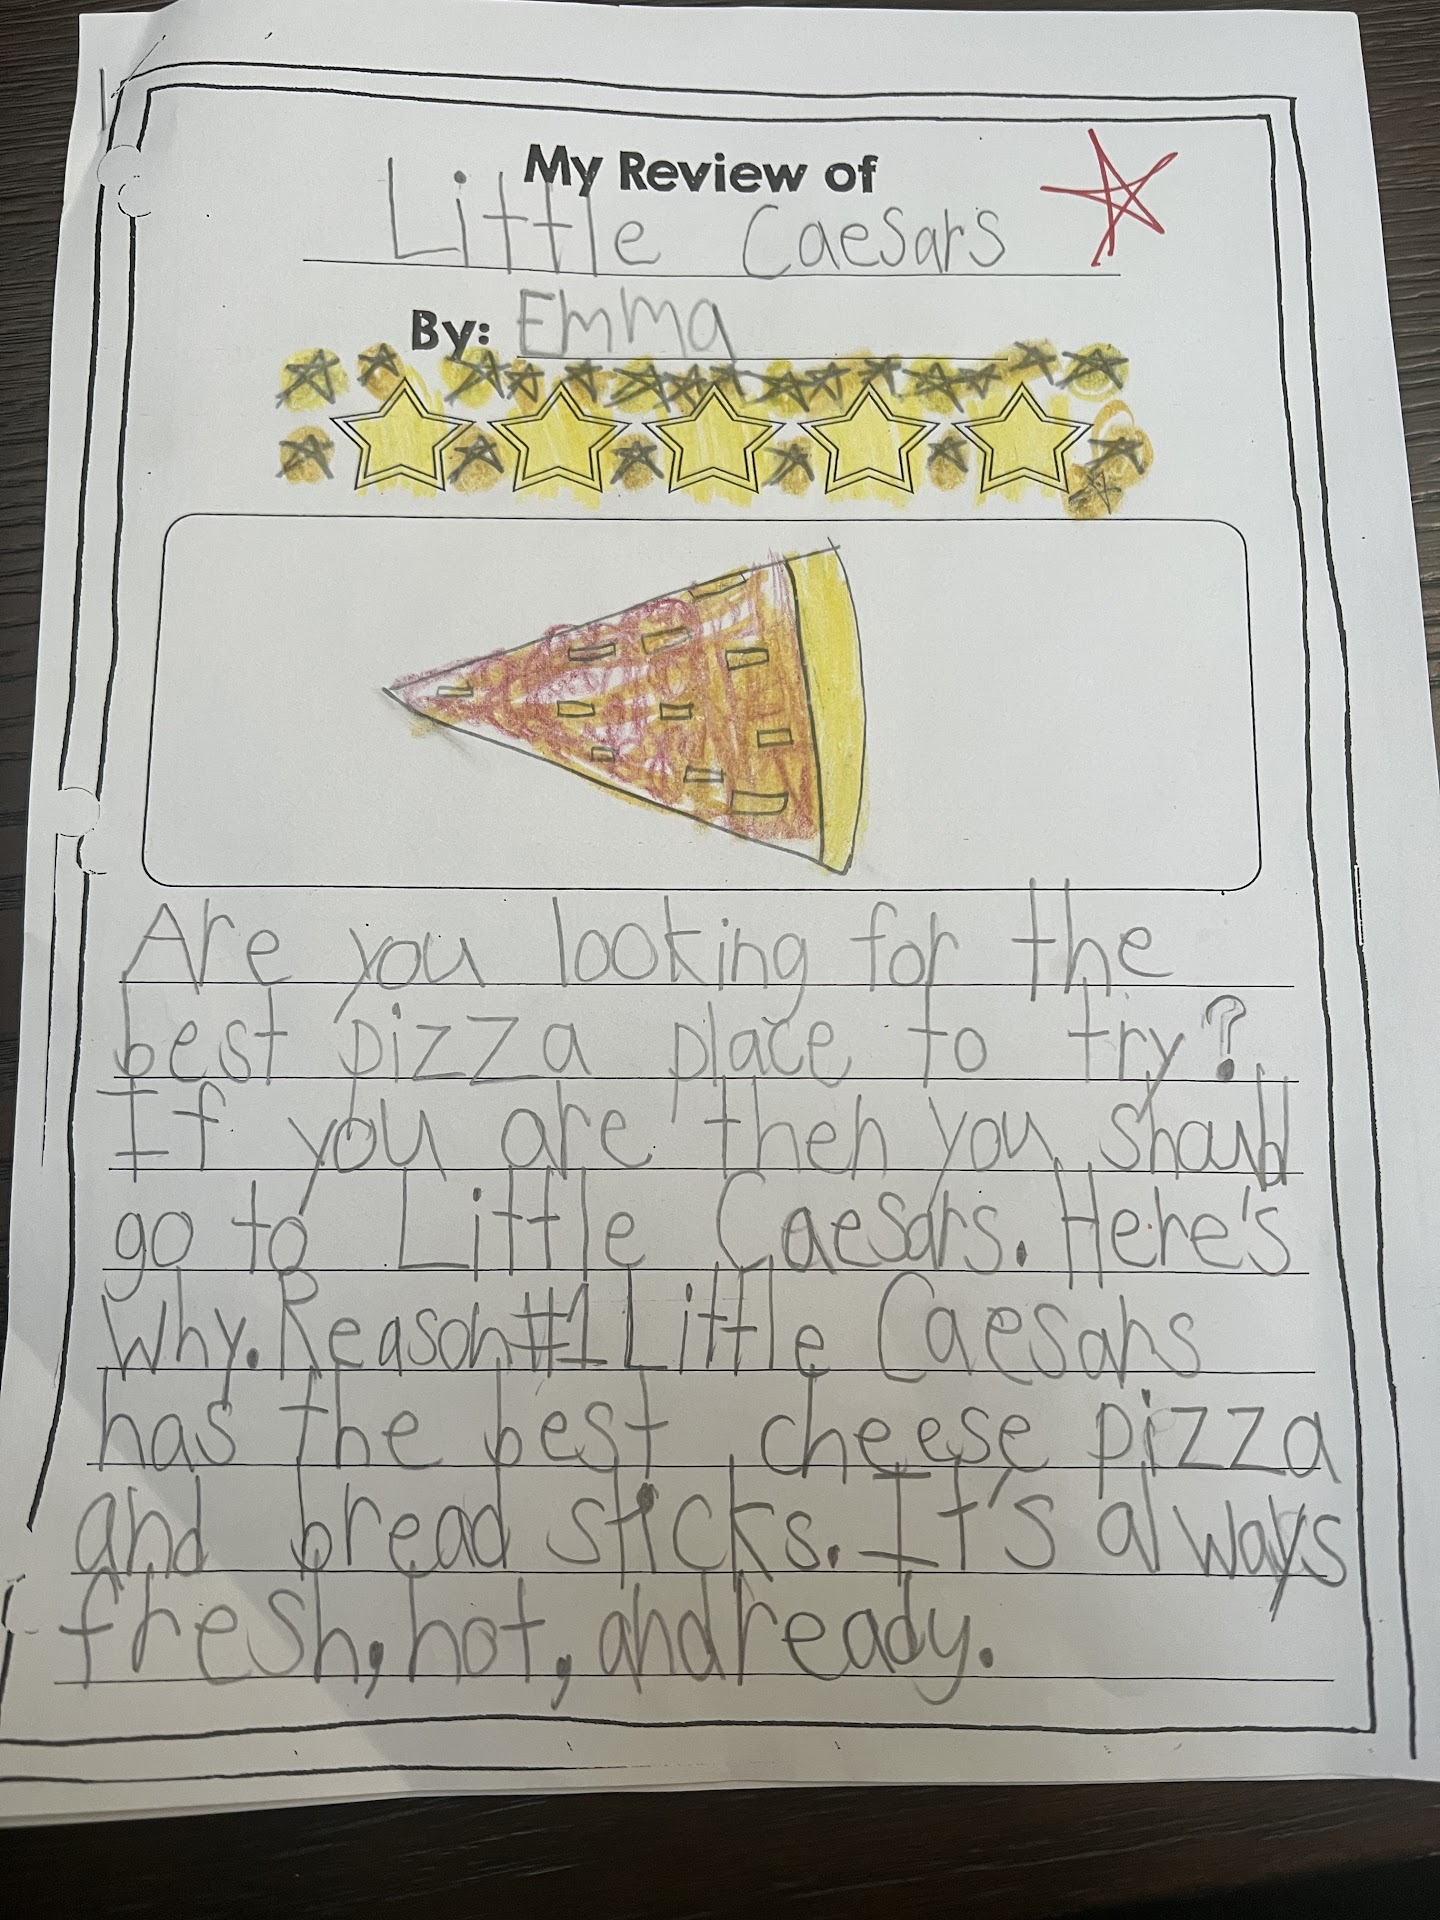 My Review of
Little Caesars
By: Emma
Are you looking for the
best pizza place to try?
If you are then you should
go to Little Caesars. Here's
Why. Reason #1 Little Caesars
has the best cheese pizza
and bread sticks. It's always
fresh, hot, and ready.